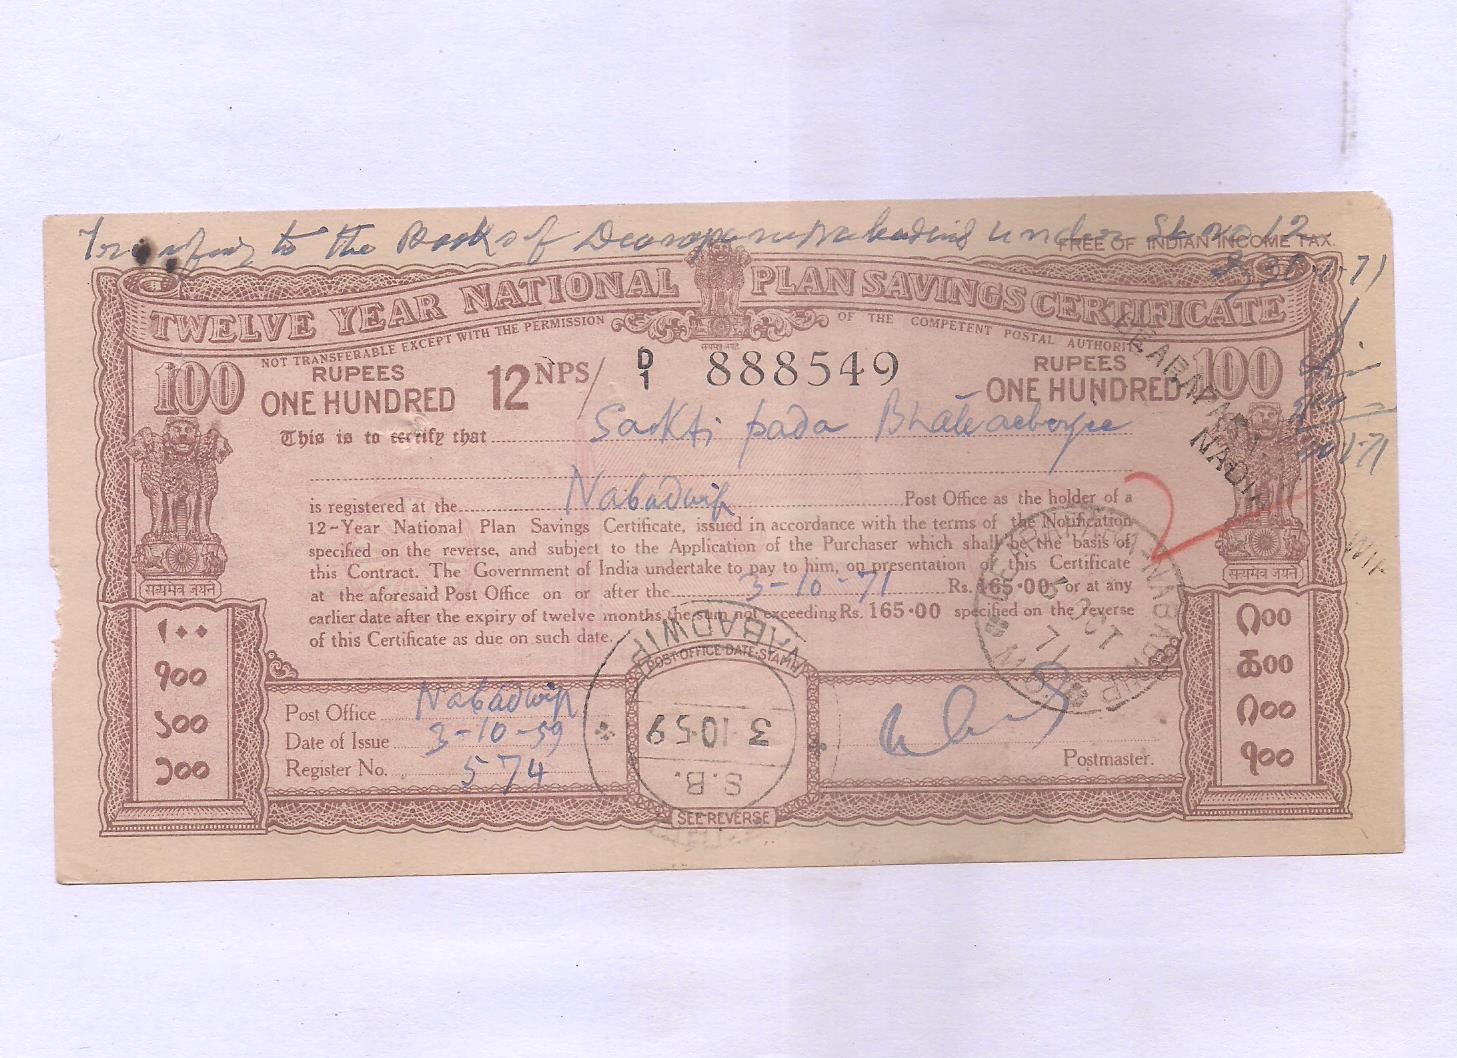 Transfer to the Books of Dearapara Nabadwip under SL no 12
FREE OF INDIAN INCOME TAX.
30-1-71
TWELVE YEAR NATIONAL PLAN SAVINGS CERTIFICATE
NOT TRANSFERABLE EXCEPT WITH THE PERMISSION OF THE COMPETENT POSTAL AUTHORITY
सत्यमेव जयते
100 RUPEES ONE HUNDRED 12 NPS/ D/1 888549 RUPEES ONE HUNDRED 100
This is to certify that Sakti pada Bhattacherjee
is registered at the Nabadwip Post Office as the holder of a
12-Year National Plan Savings Certificate, issued in accordance with the terms of the Notification
specified on the reverse, and subject to the Application of the Purchaser which shall be the basis of
this Contract. The Government of India undertake to pay to him, on presentation of this Certificate
at the aforesaid Post Office on or after the 3-10-71 Rs. 165·00, or at any
earlier date after the expiry of twelve months the sum not exceeding Rs. 165·00 specified on the reverse
of this Certificate as due on such date.
सत्यमेव जयते
सत्यमेव जयते
१००
૧૦૦
১০০
Post Office Nabadwip
Date of Issue 3-10-59
Register No. 574
POST OFFICE DATE-STAMP
NABADWIP
3·10·59
S.B.
SEE REVERSE
Postmaster.
5 OCT 71
NADIA